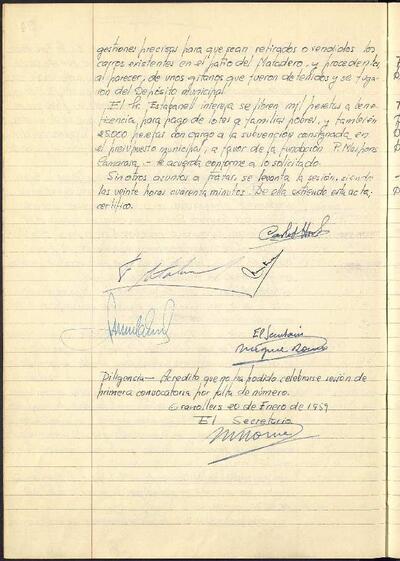 gestiones precisas para que sean retirados o vendidos los
carros existentes en el patio del Matadero, y procedentes
al parecer, de unos gitanos que fueron detenidos y se fuga-
ron del Depósito municipal.
El Sr. Estapanell interesa se libren mil pesetas a bene-
ficencia, para pago de lotes a familias pobres, y también
25.000 pesetas con cargo a la subvención consignada, en
el presupuesto municipal, a favor de la Fundación P. Maspons
Camarasa, - Se acuerda conforme a lo solicitado.
Sin otros asuntos a tratar, se levanta la sesión, siendo
las veinte horas cuarenta minutos. De ella extiendo esta acta;
certifico.
El Secretario
Diligencia — Acredito que no ha podido celebrarse sesión de
primera convocatoria por falta de número.
Granollers 20 de Enero de 1959
El Secretario